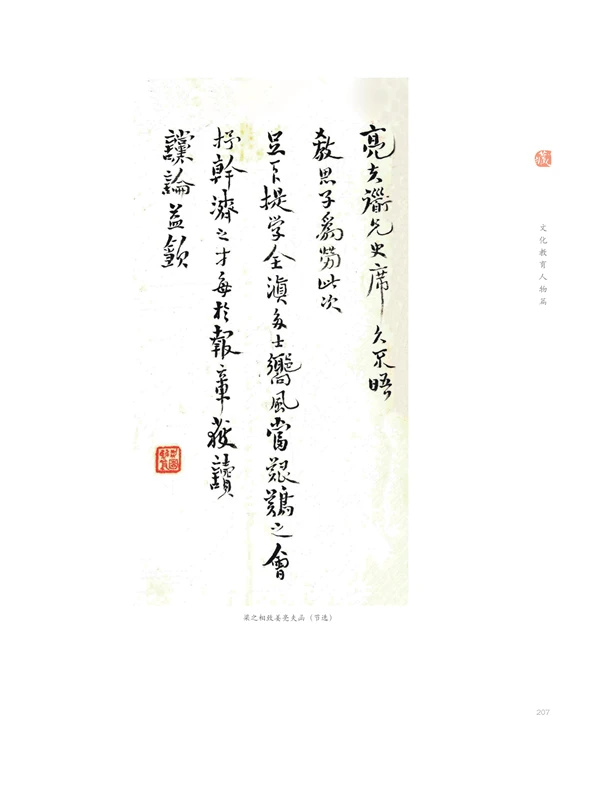 亮夫衟兄史席 久不晤
教思子爲勞此次
足下提学全滇多士嚮風當艱難之會
抒幹濟之才每於報章获讀
讜論益欽
梁之相致姜亮夫函（节选）
文化教育人物篇
207